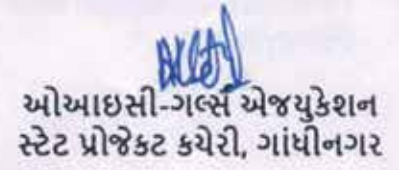 ઓઆઇસી-ગર્લ્સ એજયુકેશન
સ્ટેટ પ્રોજેકટ કચેરી, ગાંધીનગર